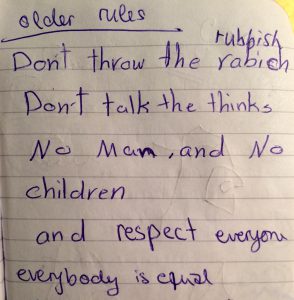 older rules
rubbish
Don't throw the rabich
Don't talk the thinks
No Man, and No
children
and respect everyone
everybody is equal